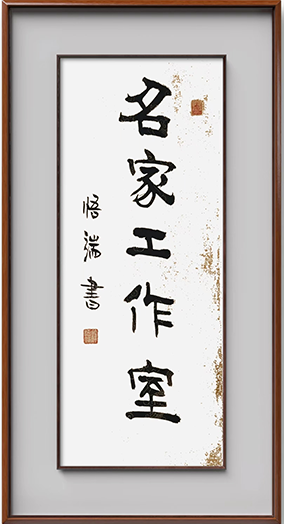 名家工作室
悟端書